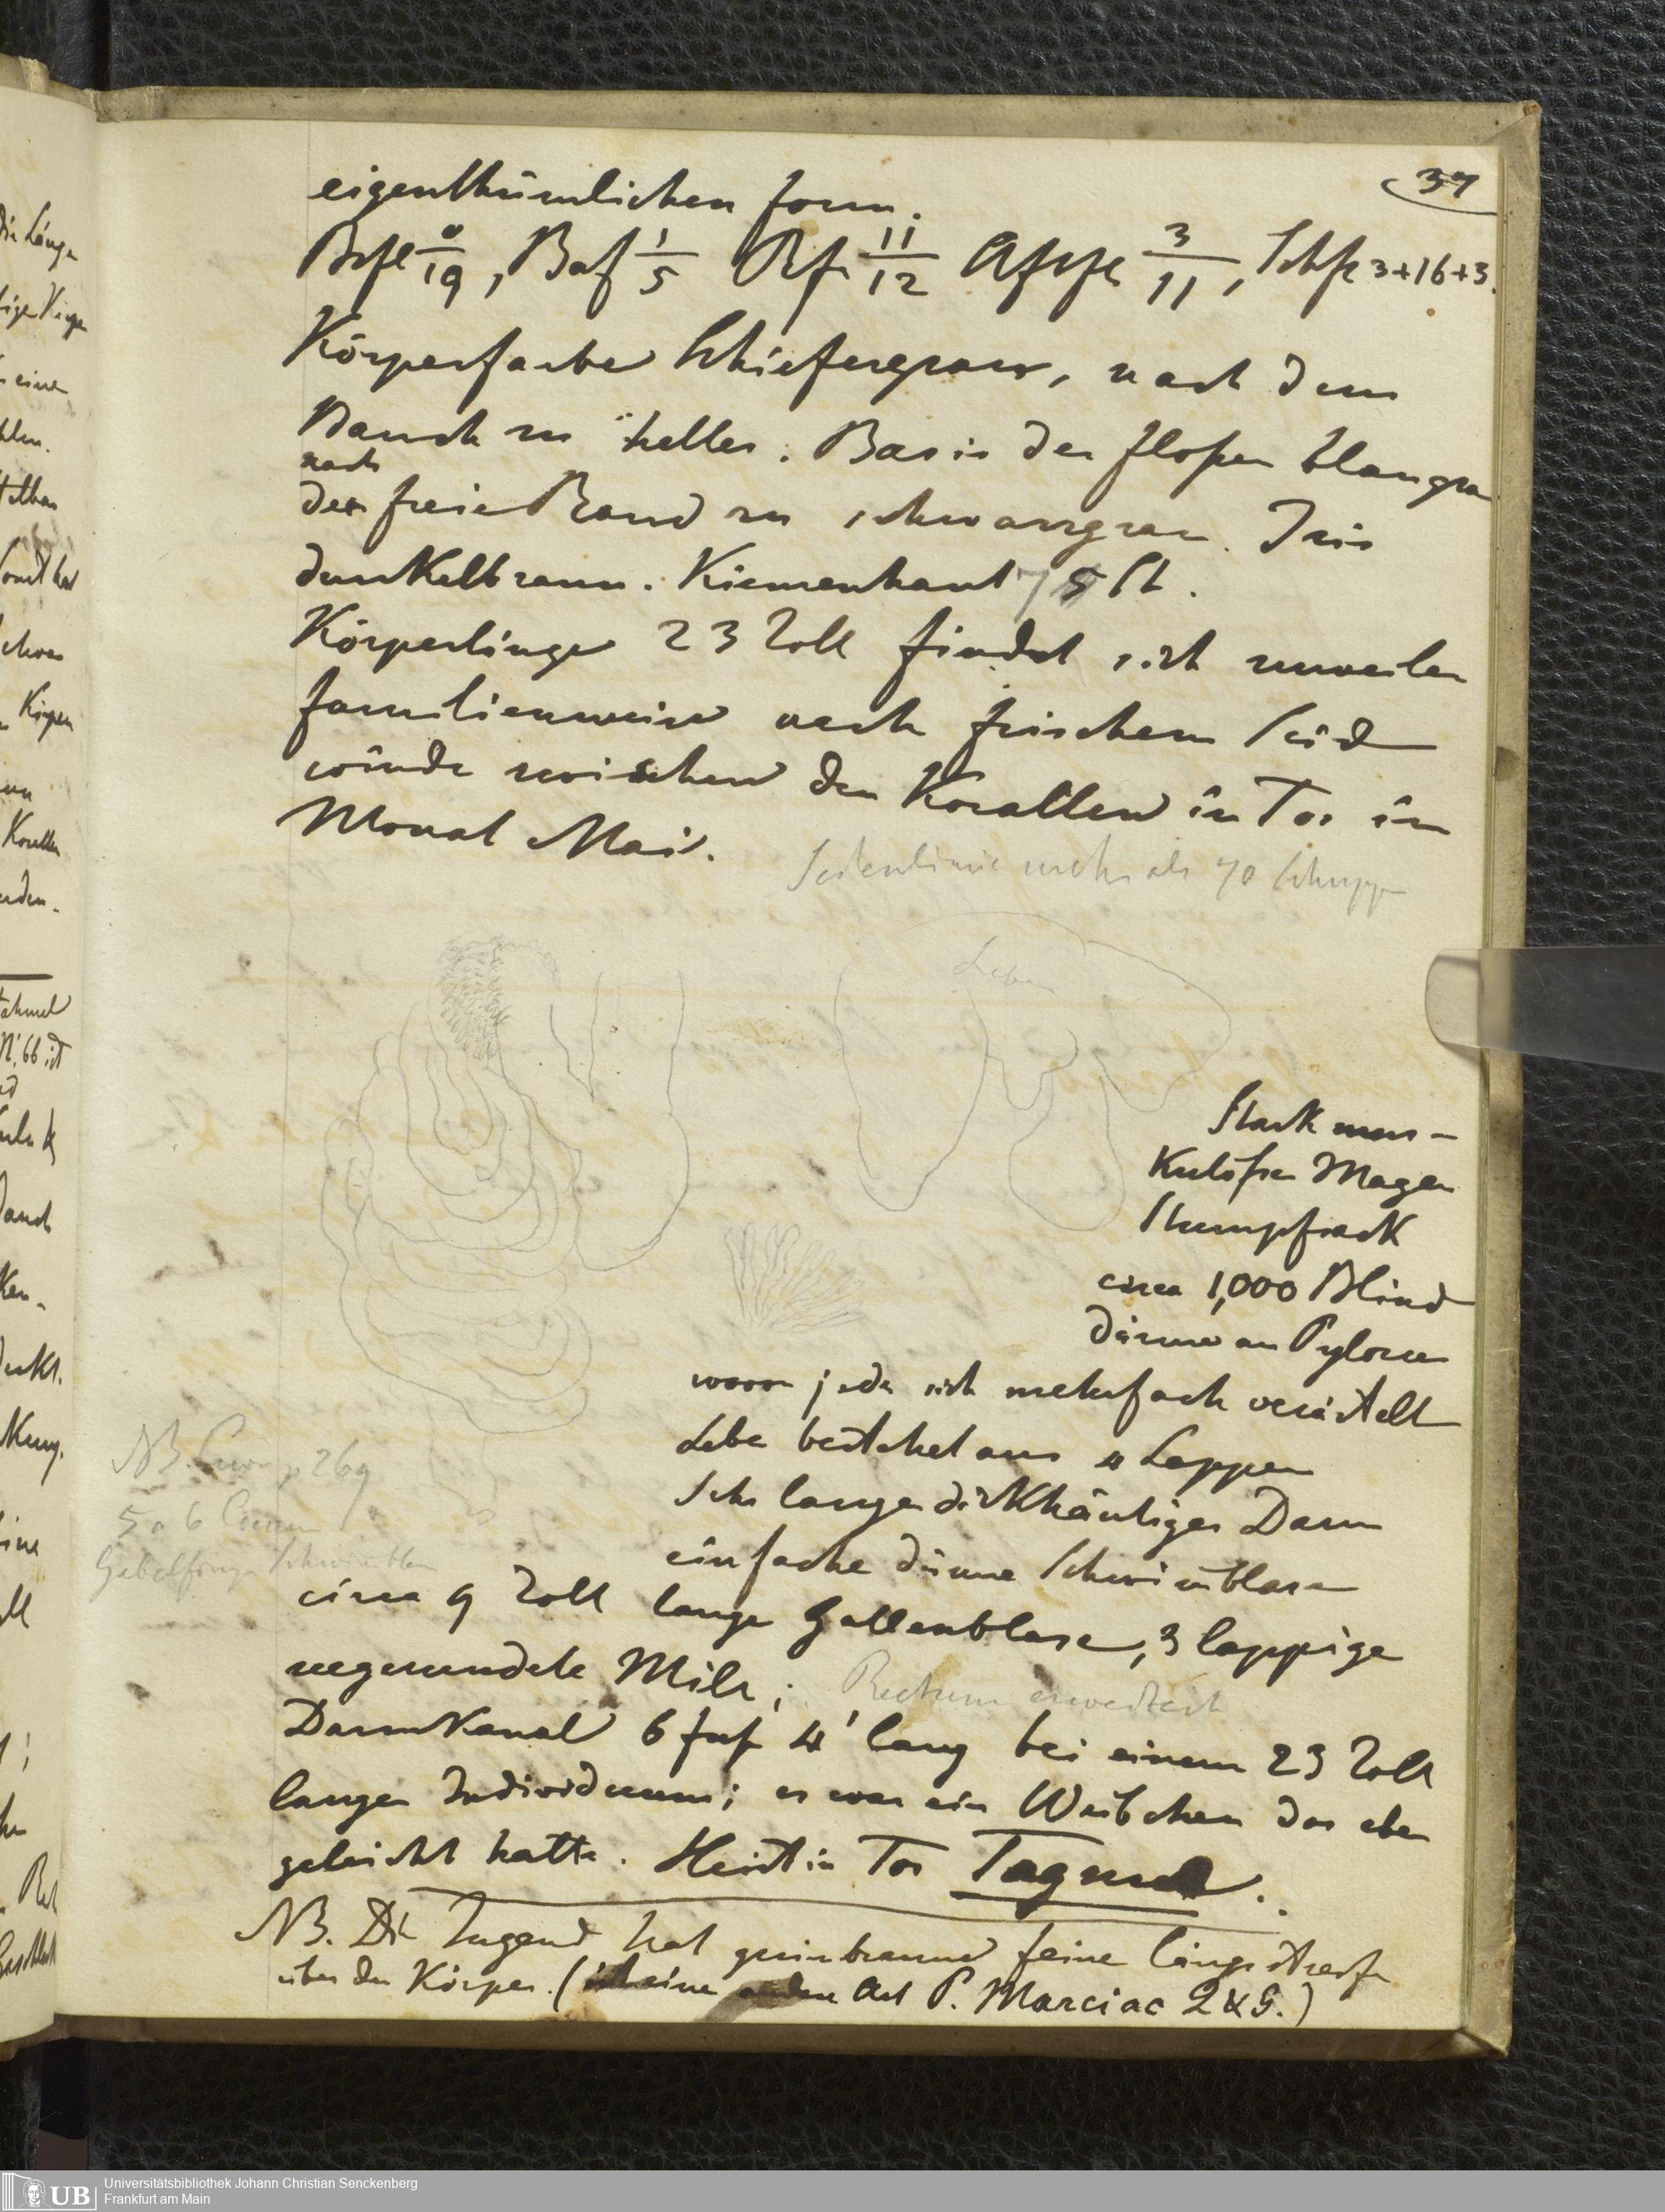 37
eigenthümlichen form.
Brfl 0/19, Baf 1/5 Rf 11/12 Afsfl 3/11, Schfl 3+16+3.
Körperfarbe Schiefergrau, nach dem
Bauch zu heller. Basis der flossen blaugra
nach
der freie Rand zu schwarzgrau. Iris
dunkelbraun. Kiemenhaut 7 St.
Körperlänge 23 Zoll findet sich zuweilen
familienweise nach frischem Süd
winde zwischen den Korallen in Tor im
Monat Mai.
Seitenlinie mehr als 70 Schuppen
Leber
Stark mus-
kulöser Magen
Stumpfsack
circa 1,000 Blind
därme am Pylorus
wovon jeder sich mehrfach verästelt
Leber bestehet aus 4 Lappen
Sehr langer dickhäutiger Darm
einfache dünne Schwimblase
NB. p 269
5 a 6
Schwimblase
circa 9 Zoll lange Gallenblase, 3 lappige
zugerundete Milz; Rectum erweitert
Darmkanal 6 fuß 4' lang bei einem 23 Zoll
langen Individuum; es war ein Weibchen das eben
geleicht hatte. Heist in Tor Tagmel.
NB. Die Jugend hat grünbraune feine längsstreife
über den Körper. (ist eine andere Art P. Marciac Q & G.)
Universitätsbibliothek Johann Christian Senckenberg
Frankfurt am Main
UB